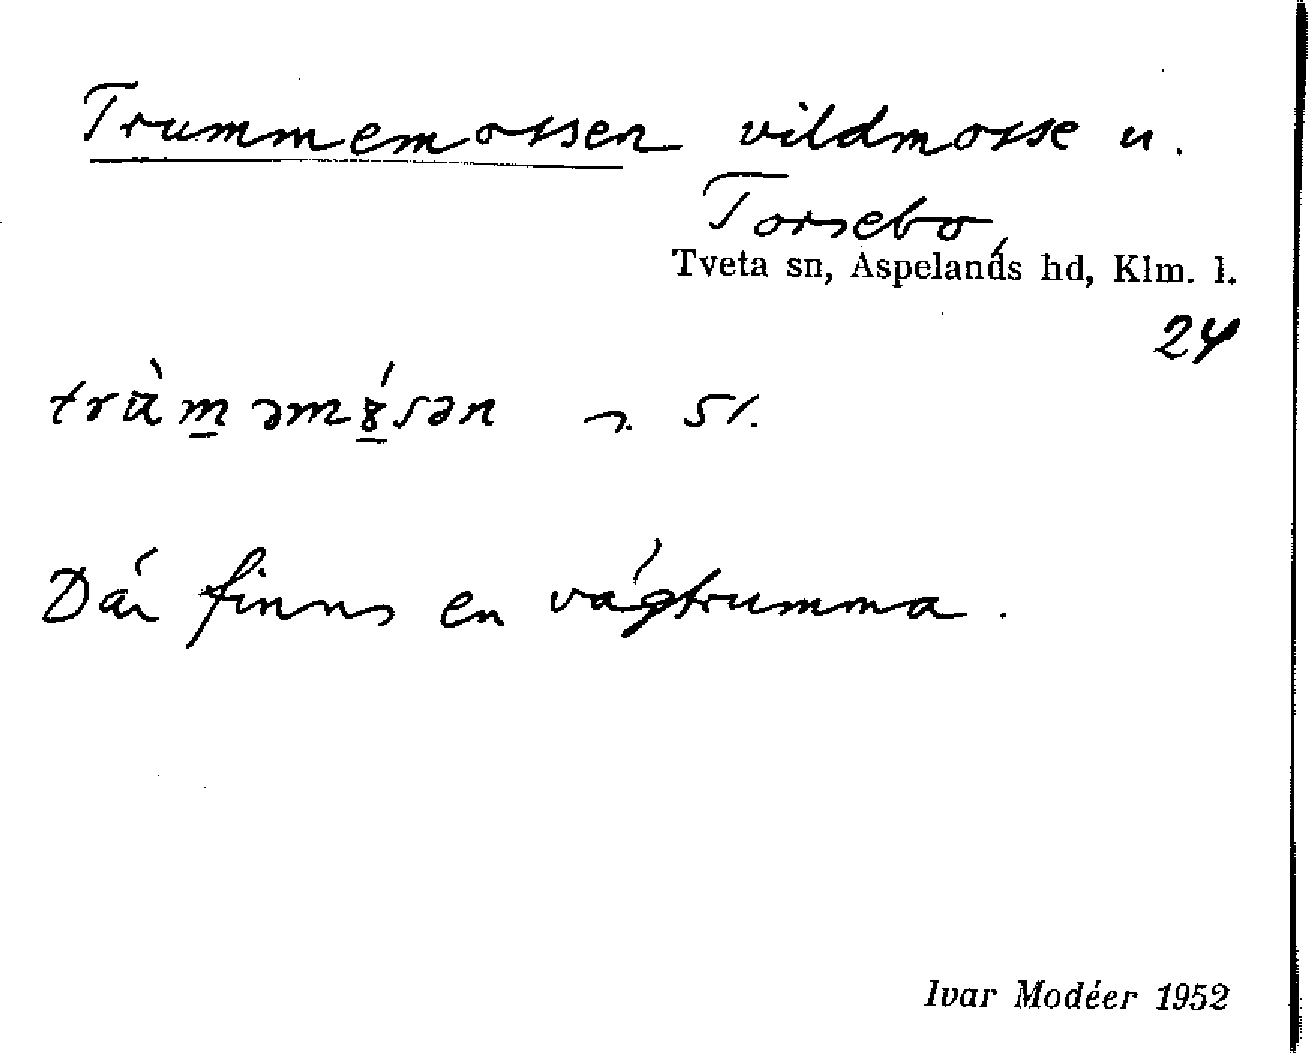 Trummemossen vildmosse u.
Torsebo,
Tveta sn, Aspelands hd, Klm. l.
24
51.
Där finns en vägtrumma.
Ivar Modéer 1952